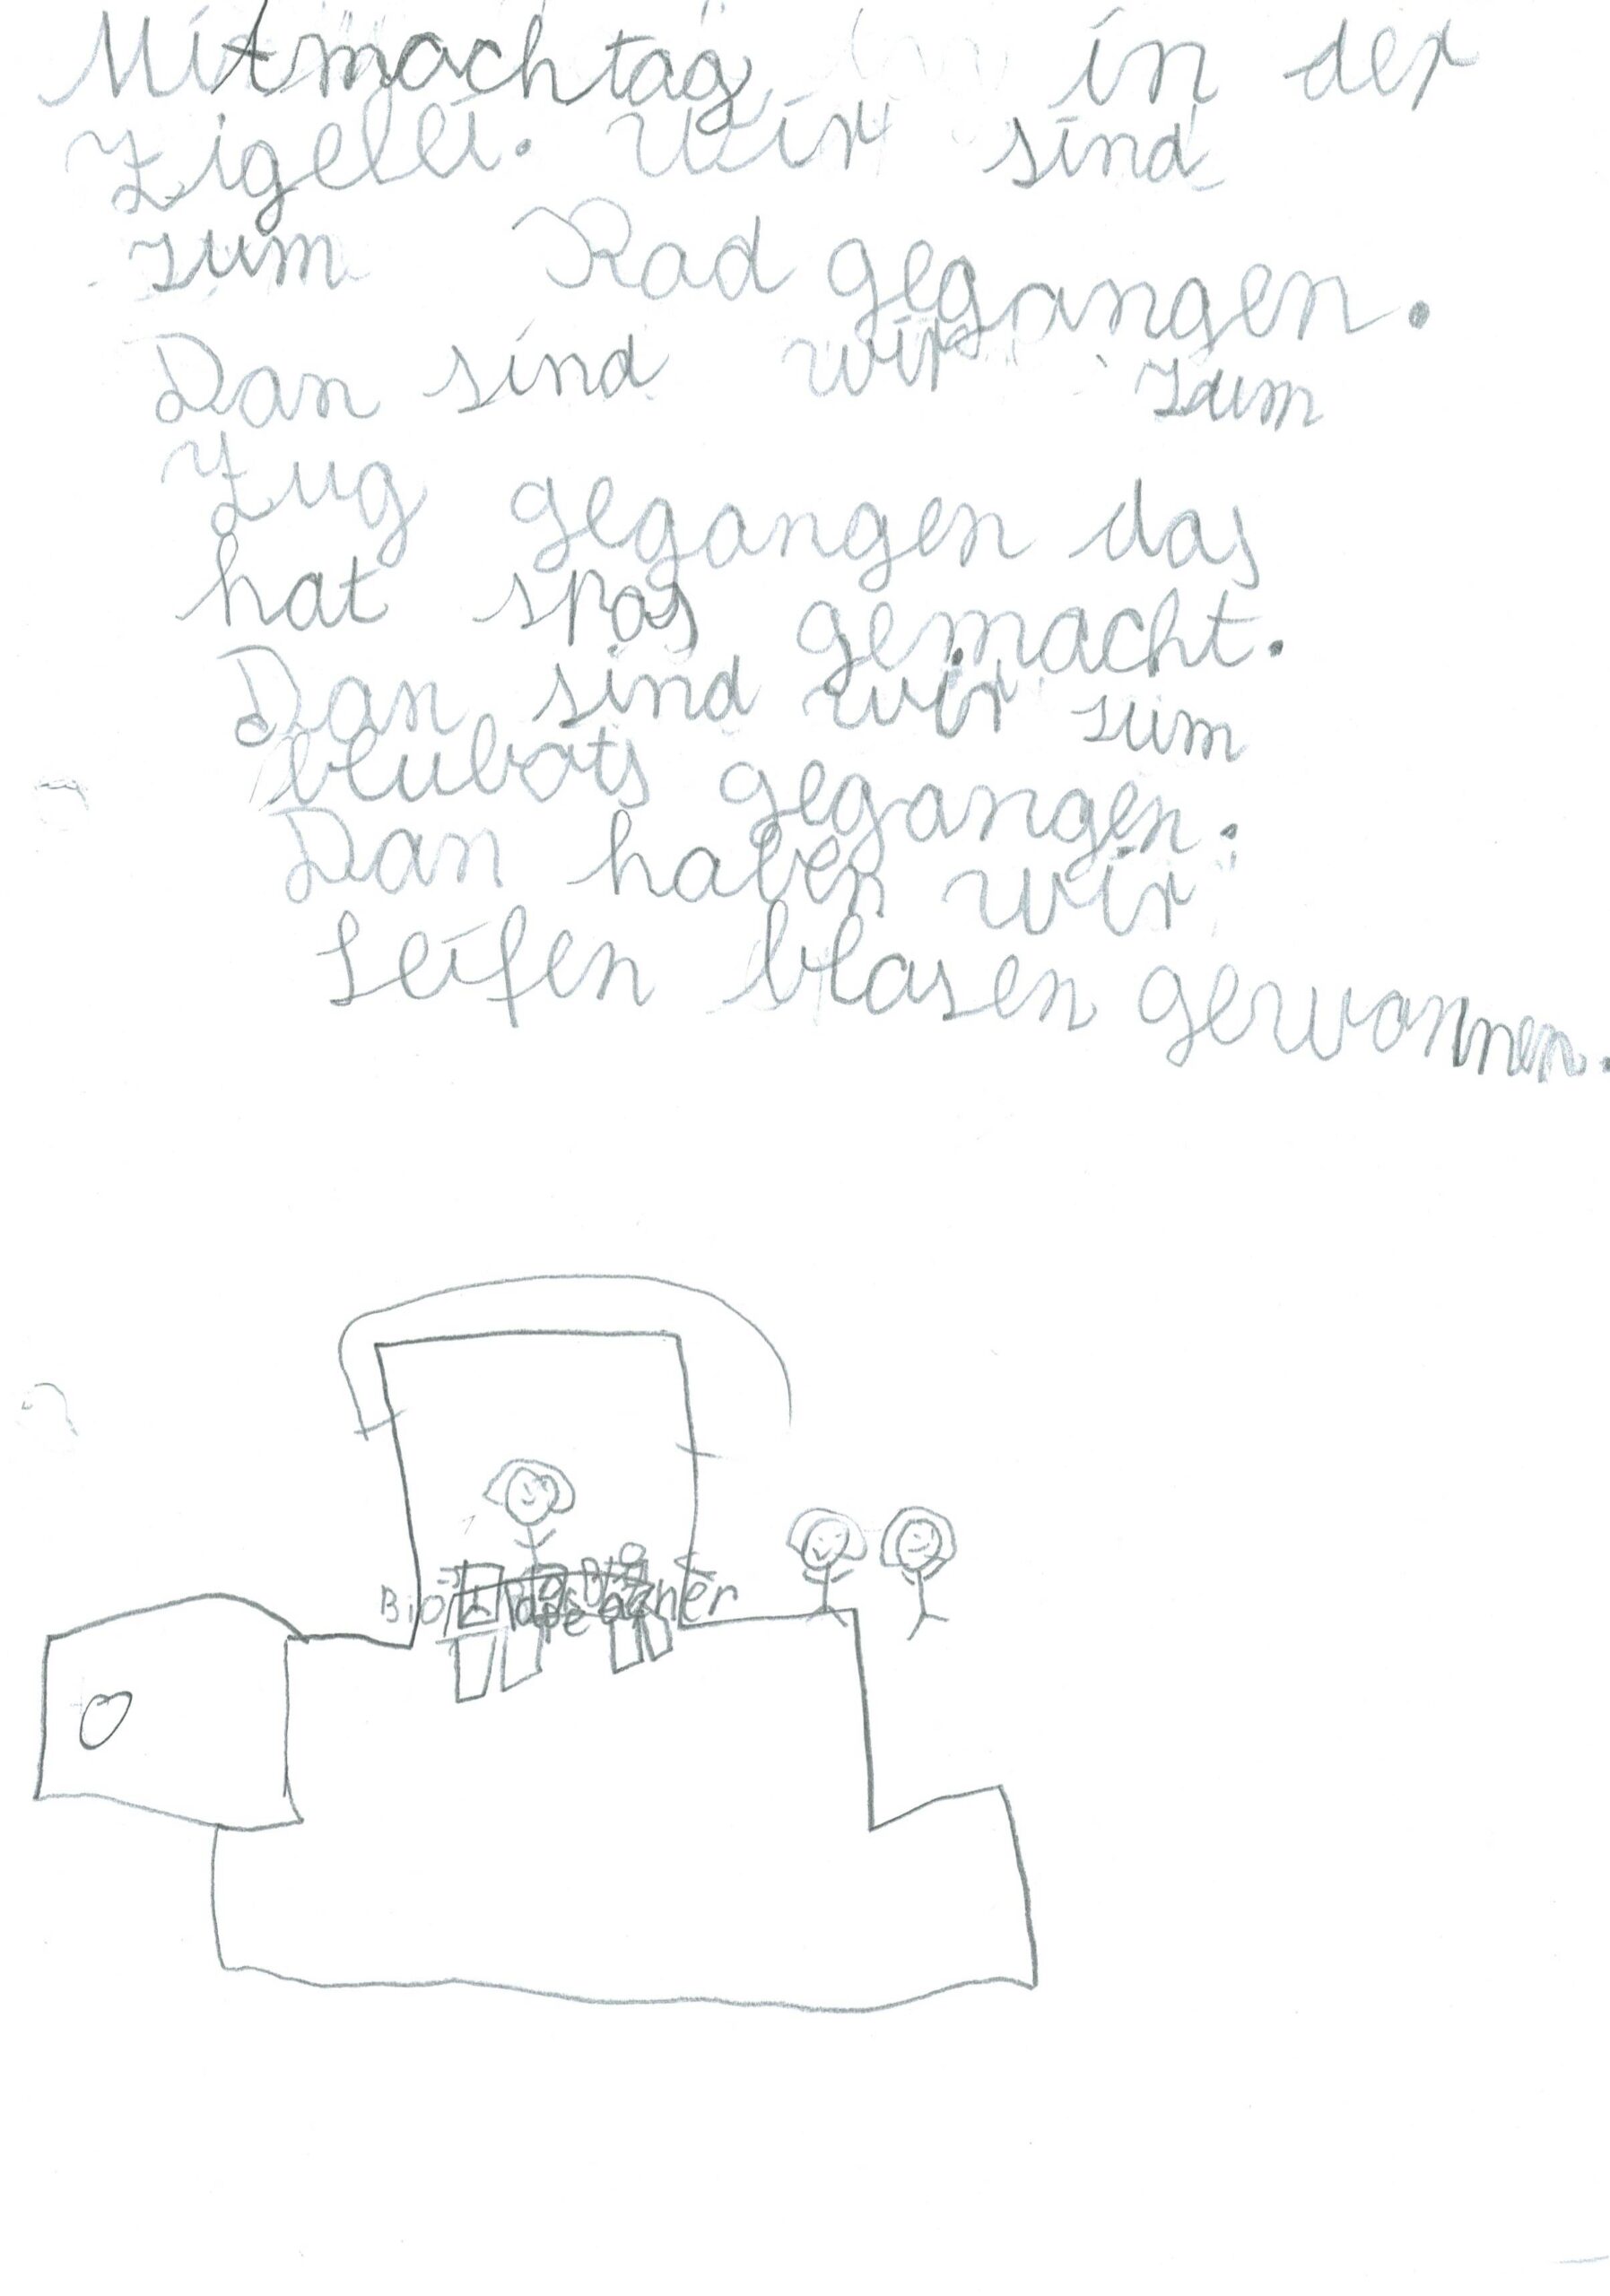 Mitmachtag in der
Zigelei. Wir sind
zum Rad gegangen.
Dan sind wir zum
Zug gegangen das
hat spas gemacht.
Dan sind wir zum
blubots gegangen.
Dan haben wir
Seifen blasen gewonnen.